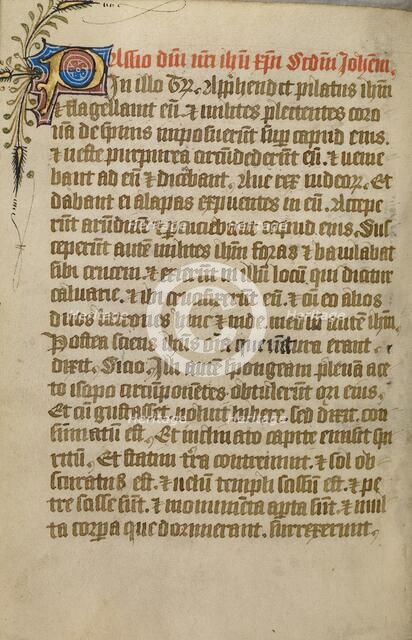 Passio dni nri ihu xpi Scdm Johem.
In illo Tpr. Apphendit pilatus ihm
& flagellauit eu. & milites plectentes coro
na de spinis imposuerunt sup capud eius.
& ueste purpurea circudederunt eu. & uenie
bant ad eu & dicebant. Aue rex iudeor. Et
dabant ei alapas expuentes in eu. Accepe
rut arundine & percuciebant capud eius. Sus
ceperunt aute milites ihm foras & baiulabat
sibi crucem. & exierut in illu locu qui dicitur
caluarie. & ibi crucifixerut eu. & cu eo alios
duos latrones hinc & inde. mediu aute ihm.
Postea sciens ihus oia que uentura erant
dixit. Sicio. Illi aute spongeam plena ace
to isopo circuponentes obtulerunt ori eius.
Et cu gustasset. noluit bibere. sed dixit. con
sumatu est. Et inclinato capite emisit spi
ritu. Et statim tra contremuit. & sol ob
scuratus est. & uelu templi scissu est. & pe
tre scisse sut. & monumeta apta sut. & mul
ta corpa que dormierant. surrexerunt.